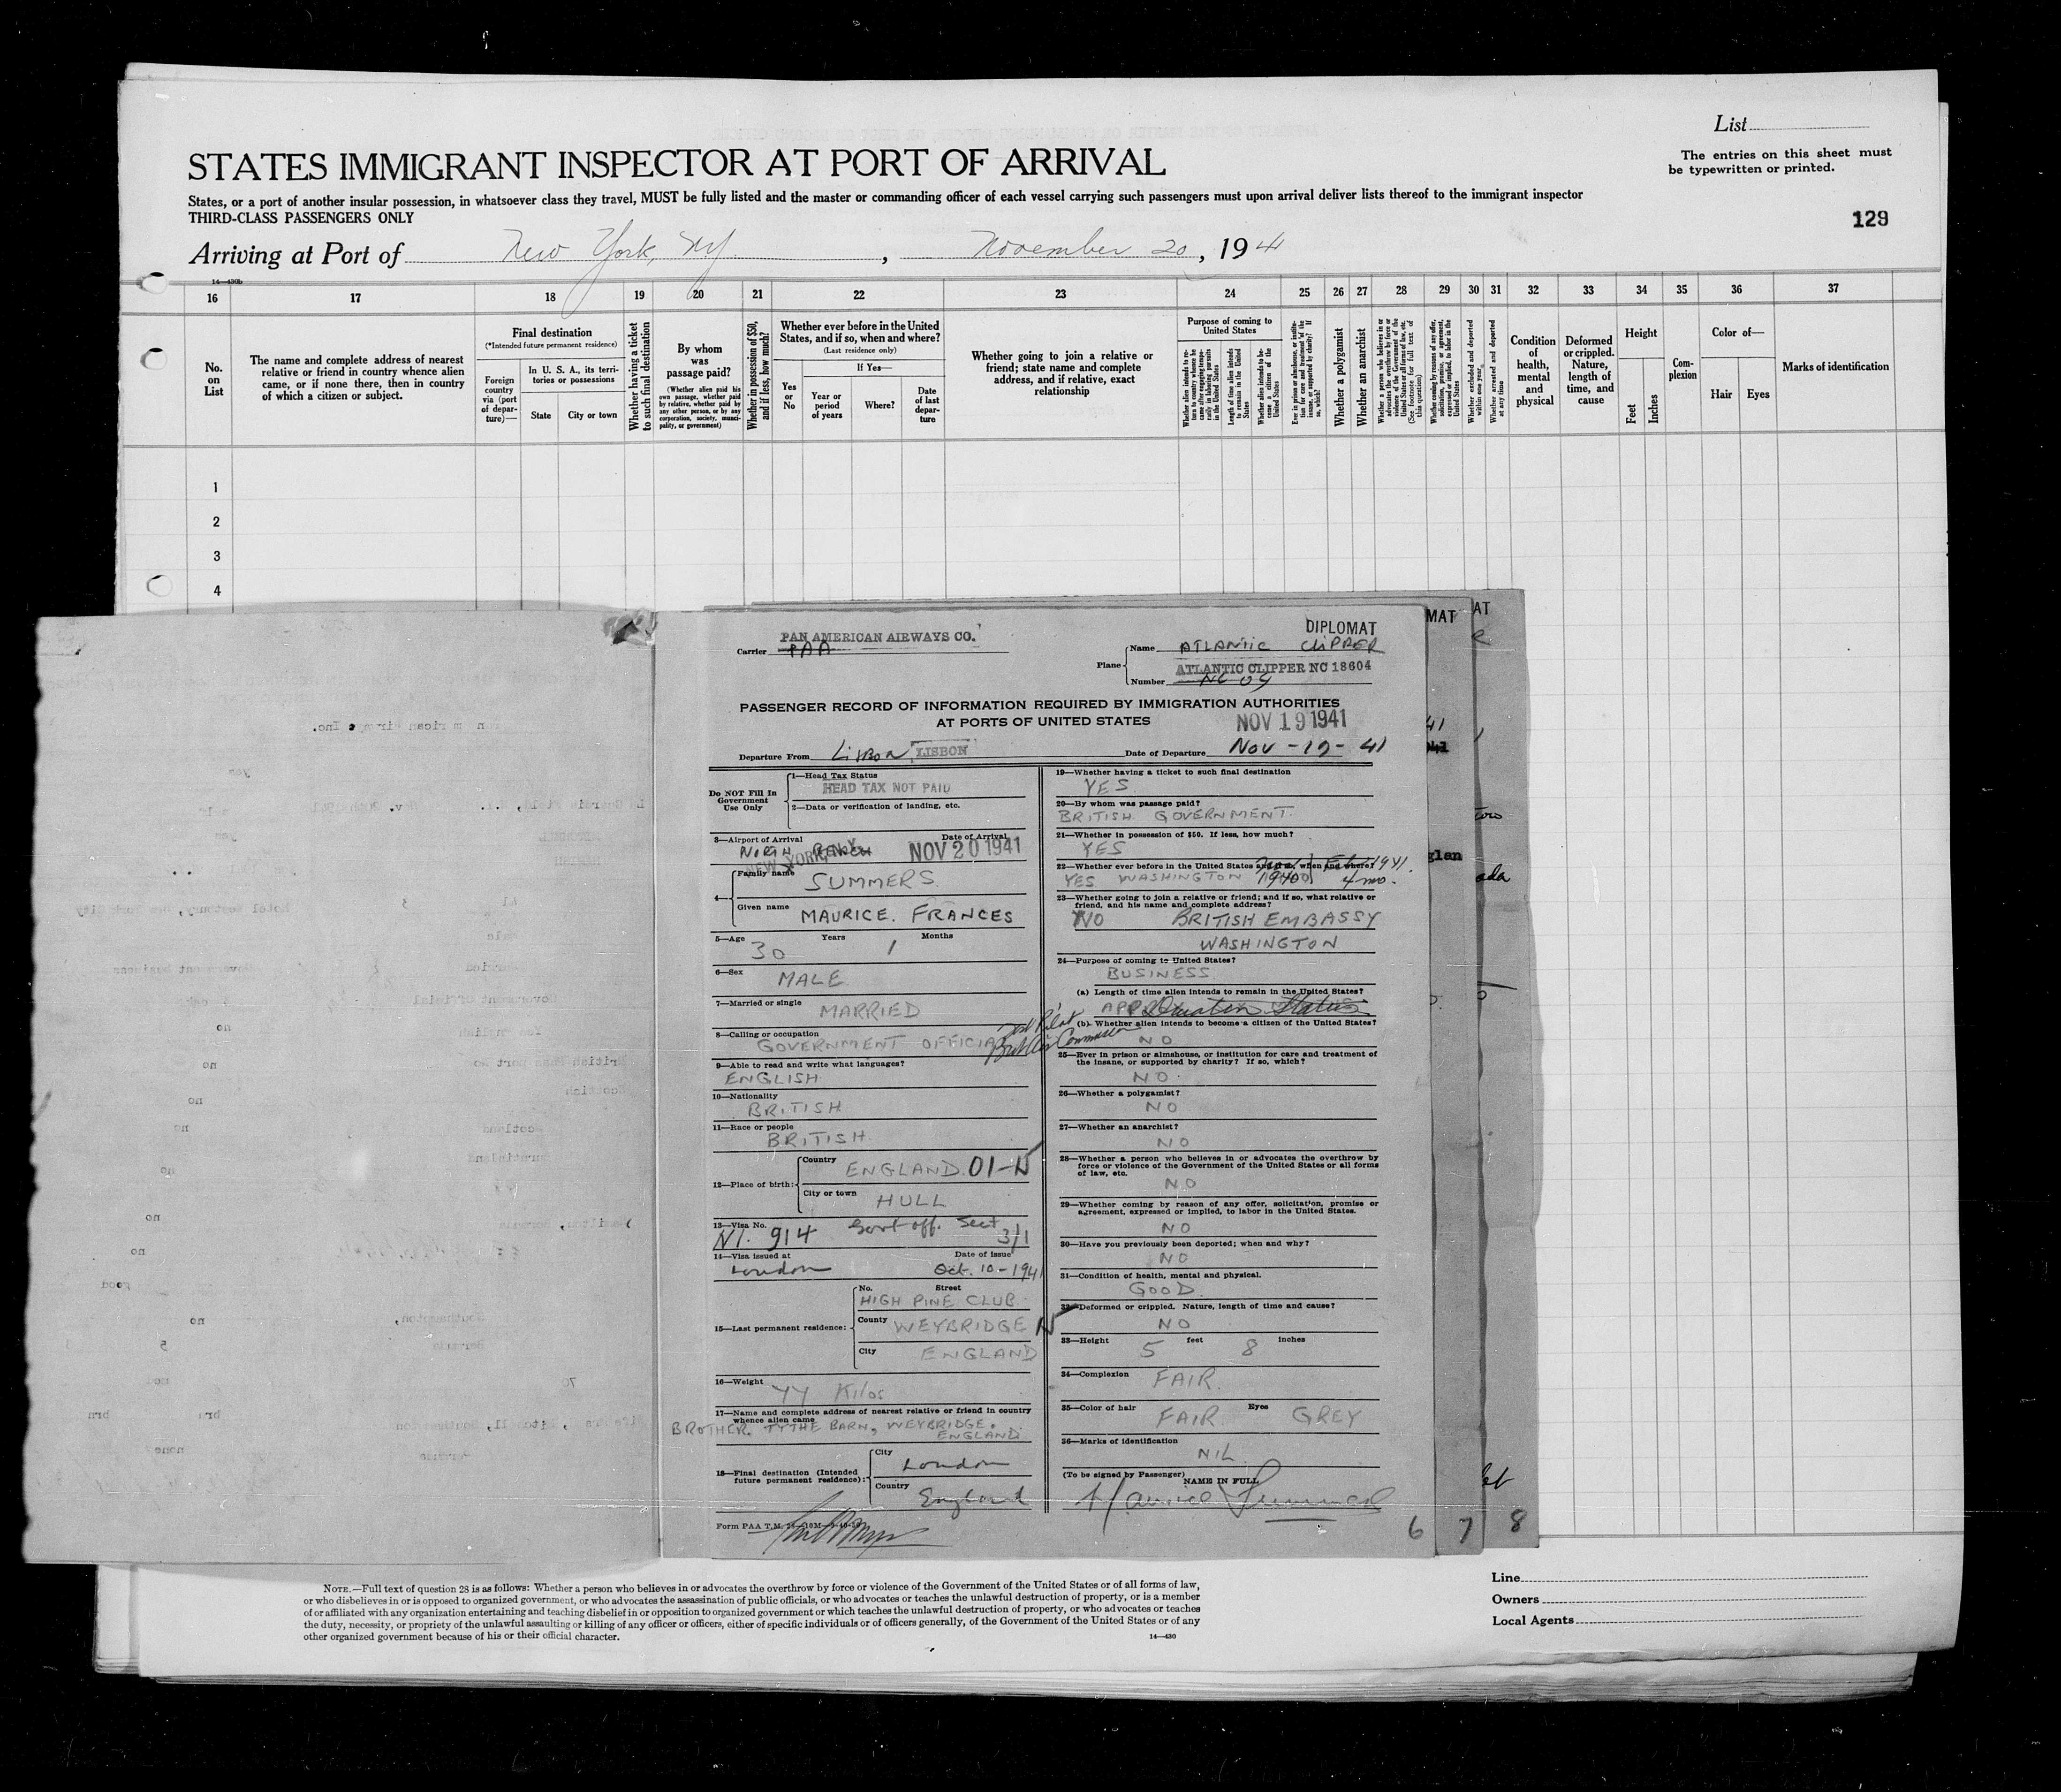 List
The entries on this sheet must
be typewritten or printed.
STATES IMMIGRANT INSPECTOR AT PORT OF ARRIVAL
States, or a port of another insular possession, in whatsoever class they travel, MUST be fully listed and the master or commanding officer of each vessel carrying such passengers must upon arrival deliver lists thereof to the immigrant inspector
THIRD-CLASS PASSENGERS ONLY
129
Arriving at Port of New York, NY , November 20, 1941
14—430b
16 17 18 19 20 21 22 23 24 25 26 27 28 29 30 31 32 33 34 35 36 37
No. on List
The name and complete address of nearest
relative or friend in country whence alien
came, or if none there, then in country
of which a citizen or subject.
Final destination
(*Intended future permanent residence)
Foreign country via (port of departure)—
In U. S. A., its territories or possessions
State
City or town
Whether having a ticket to such final destination
By whom was passage paid?
(Whether alien paid his own passage, whether paid by relative, whether paid by any other person, or by any corporation, society, municipality, or government)
Whether in possession of $50, and if less, how much?
Whether ever before in the United
States, and if so, when and where?
(Last residence only)
Yes or No
If Yes—
Year or period of years
Where?
Date of last departure
Whether going to join a relative or
friend; state name and complete
address, and if relative, exact
relationship
Purpose of coming to
United States
Whether a polygamist
Whether an anarchist
Condition of health, mental and physical
Deformed or crippled. Nature, length of time, and cause
Height
Feet
Inches
Complexion
Color of—
Hair
Eyes
Marks of identification
1
2
3
4
PAN AMERICAN AIRWAYS CO.
Carrier PAA
DIPLOMAT
Plane
Name ATLANTIC CLIPPER
ATLANTIC CLIPPER NC 18604
Number NC 04
PASSENGER RECORD OF INFORMATION REQUIRED BY IMMIGRATION AUTHORITIES
AT PORTS OF UNITED STATES
NOV 19 1941
Departure From Lisbon LISBON
Date of Departure Nov - 19 - 41
Do NOT Fill In
Government
Use Only
1—Head Tax Status
HEAD TAX NOT PAID
2—Data or verification of landing, etc.
3—Airport of Arrival
Date of Arrival
NORTH BEACH NEW YORK, N.Y. NOV 20 1941
4— Family name SUMMERS
Given name MAURICE. FRANCES
5—Age 30 Years 1 Months
6—Sex MALE
7—Married or single MARRIED
8—Calling or occupation
GOVERNMENT OFFICIAL
Test Pilot
Brit Air Commission
9—Able to read and write what languages?
ENGLISH
10—Nationality
BRITISH
11—Race or people
BRITISH
12—Place of birth:
Country ENGLAND. 01-W
City or town HULL
13—Visa No.
NI. 914 Govt off. Sect 3/1
14—Visa issued at London
Date of issue Oct. 10 - 1941
15—Last permanent residence:
No. Street
HIGH PINE CLUB
County WEYBRIDGE
City ENGLAND
16—Weight 77 Kilos
17—Name and complete address of nearest relative or friend in country
whence alien came
BROTHER. TYTHE BARN, WEYBRIDGE.
ENGLAND.
18—Final destination (Intended
future permanent residence):
City London
Country England
Form PAA T.M.
19—Whether having a ticket to such final destination
YES
20—By whom was passage paid?
BRITISH GOVERNMENT.
21—Whether in possession of $50. If less, how much?
YES
22—Whether ever before in the United States and if so, when and where?
YES WASHINGTON 1940 Feb 1941.
4 mo.
23—Whether going to join a relative or friend; and if so, what relative or
friend, and his name and complete address?
NO BRITISH EMBASSY
WASHINGTON
24—Purpose of coming to United States?
BUSINESS
(a) Length of time alien intends to remain in the United States?
Duration Status
(b) Whether alien intends to become a citizen of the United States?
NO
25—Ever in prison or almshouse, or institution for care and treatment of
the insane, or supported by charity? If so, which?
NO.
26—Whether a polygamist?
NO
27—Whether an anarchist?
NO
28—Whether a person who believes in or advocates the overthrow by
force or violence of the Government of the United States or all forms
of law, etc.
NO
29—Whether coming by reason of any offer, solicitation, promise or
agreement, expressed or implied, to labor in the United States.
NO
30—Have you previously been deported; when and why?
NO
31—Condition of health, mental and physical.
GOOD.
32—Deformed or crippled. Nature, length of time and cause?
NO
33—Height 5 feet 8 inches
34—Complexion FAIR.
35—Color of hair FAIR Eyes GREY
36—Marks of identification
NIL
(To be signed by Passenger) NAME IN FULL
Maurice Summers
6 7 8
NOTE.—Full text of question 28 is as follows: Whether a person who believes in or advocates the overthrow by force or violence of the Government of the United States or of all forms of law,
or who disbelieves in or is opposed to organized government, or who advocates the assassination of public officials, or who advocates or teaches the unlawful destruction of property, or is a member
of or affiliated with any organization entertaining and teaching disbelief in or opposition to organized government or which teaches the unlawful destruction of property, or who advocates or teaches
the duty, necessity, or propriety of the unlawful assaulting or killing of any officer or officers, either of specific individuals or of officers generally, of the Government of the United States or of any
other organized government because of his or their official character.
14—430
Line
Owners
Local Agents